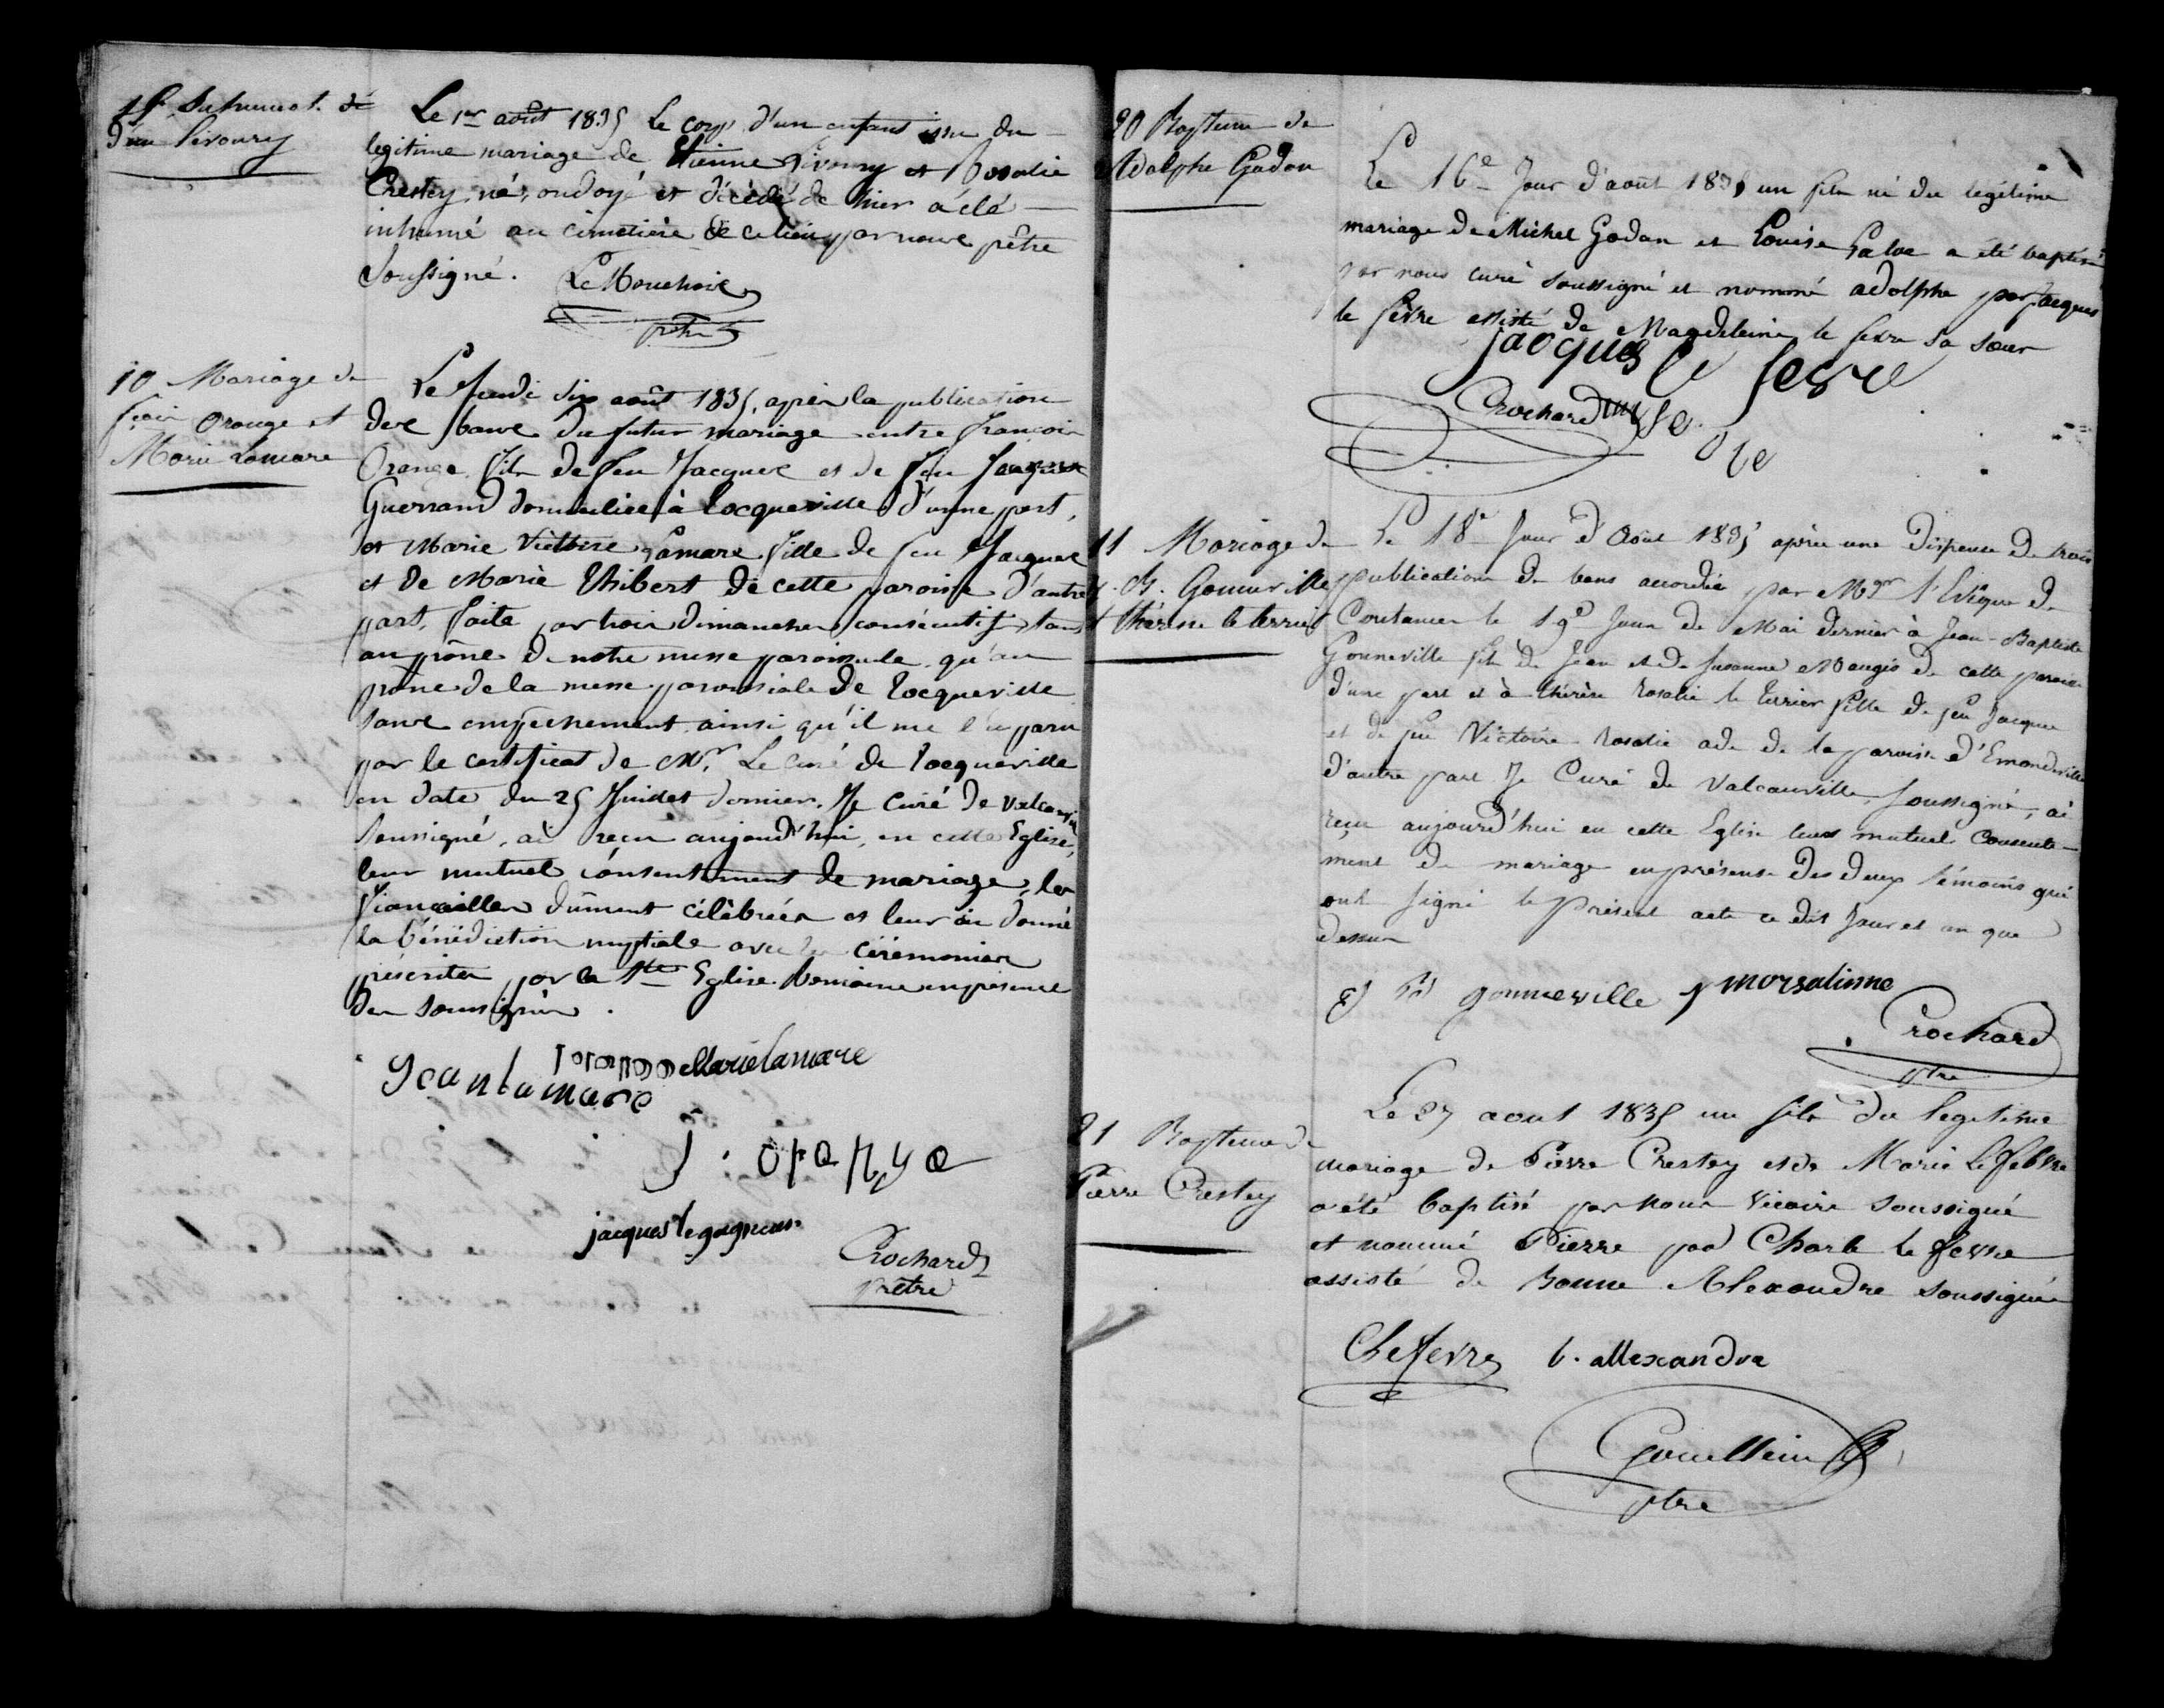 Inhumat. de
d'un Livoury
Le 1er août 1835 Le corps d'un enfant issu du
legitime mariage de Etienne Livoury et Rosalie
Crestey, né, ondoyé et décédé de hier a été
inhumé au cimetière de ce lieu par nous prêtre
Soussigné.
LeMouchoir
ptre
10 Mariage de
fçois Orange et
Marie Lamare
Le Jeudi six août 1835, après la publication
des bans du futur mariage entre François
Orange fils de feu Jacques et de feu
Guerrand domiciliée à Tocqueville d'une part,
et Marie Victoire Lamare fille de feu Jacques
et de Marie Thibert de cette paroisse d'autre
part, faite par trois dimanches consécutifs tant
au prône de notre messe paroissiale qu'au
prône de la messe paroissiale de Tocqueville
sans empêchement ainsi qu'il me paru
par le certificat de Mr. Le Curé de Tocqueville
en date du 25 Juillet dernier. Je Curé de Valcanville
Soussigné, ai reçu aujourd'hui, en cette Eglise,
leur mutuel consentement de mariage, les
fiancailles dûment célébrées et leur ai donné
la bénédiction nuptiale avec les cérémonies
prescrites par la Ste Eglise Romaine en présence
des soussignés.
Marie lamare
Jean lamare
j. orange
jacques legagneur
Crochard
prêtre
20 Bapteme de
Adolphe Godan
Le 16e Jour d'août 1835 un fils né du legitime
mariage de Michel Godan et Louise a été baptisé
par nous curé soussigné et nommé adolphe par Jacques
le fevre assisté de Magdeleine le fevre sa sœur
jacques le fevre
Crochard
11 Mariage de
J. B. Gonneville
et thérèse le terrier
Le 18e Jour d'Août 1835 après une dispense de trois
publications de bans accordée par Mgr l'Evêque de
Coutances le 19e Jour de Mai dernier à Jean-Baptiste
Gonneville fils de Jean et de Susanne Maugis de cette paroisse
d'une part et à thérèse rosalie le terrier fille de feu Jacques
et de feu Victoire rosalie ade de la paroisse d'Emondeville
d'autre part Je Curé de Valcanville, Soussigné, ai
reçu aujourd'hui en cette Eglise leur mutuel consente-
ment de mariage en présence des deux témoins qui
ont signé le présent acte ce dit Jour et an que
dessus
gonneville morsalinne
Crochard
ptre
21 Bapteme de
Pierre Crestey
Le 27 aout 1835 un fils du legitime
mariage de Pierre Crestey et de Marie Lefebvre
a été baptisé par nous Vicaire soussigné
et nommé Pierre par Charle le fevre
assisté de Bonne Alexandre soussignée
C lefevre b. allexandre
ptre